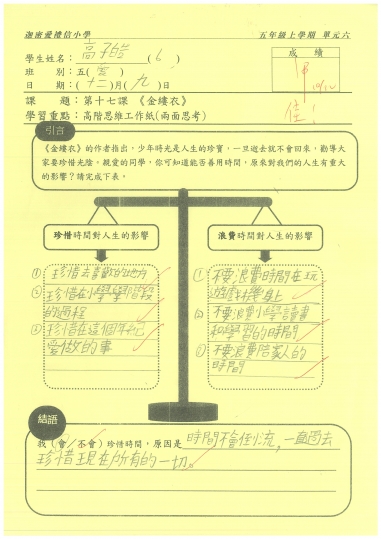 迦密愛禮信小學 五年級上學期 單元六
學生姓名： ( 6 ) 成績
班 別：五( 愛 )
日 期：( 十二 )月( 九 )日 佳！
課 題：第十七課 《金縷衣》
學習重點：高階思維工作紙(兩面思考)
引言
《金縷衣》的作者指出，少年時光是人生的珍寶，一旦逝去就不會回來，勸導大
家要珍惜光陰。親愛的同學，你可知道能否善用時間，原來對我們的人生有重大
的影響？請完成下表。
珍惜時間對人生的影響
① 珍惜去喜歡的地方
② 珍惜在小學學階段
的過程
③ 珍惜在這個年紀
愛做的事
浪費時間對人生的影響
① 不要浪費時間在玩
遊戲機身上
② 不要浪費小學讀書
和學習的時間
③ 不要浪費陪家人的
時間
結語
我（會／不會）珍惜時間，原因是 時間不會倒流，一直過去
珍惜現在所有的一切。